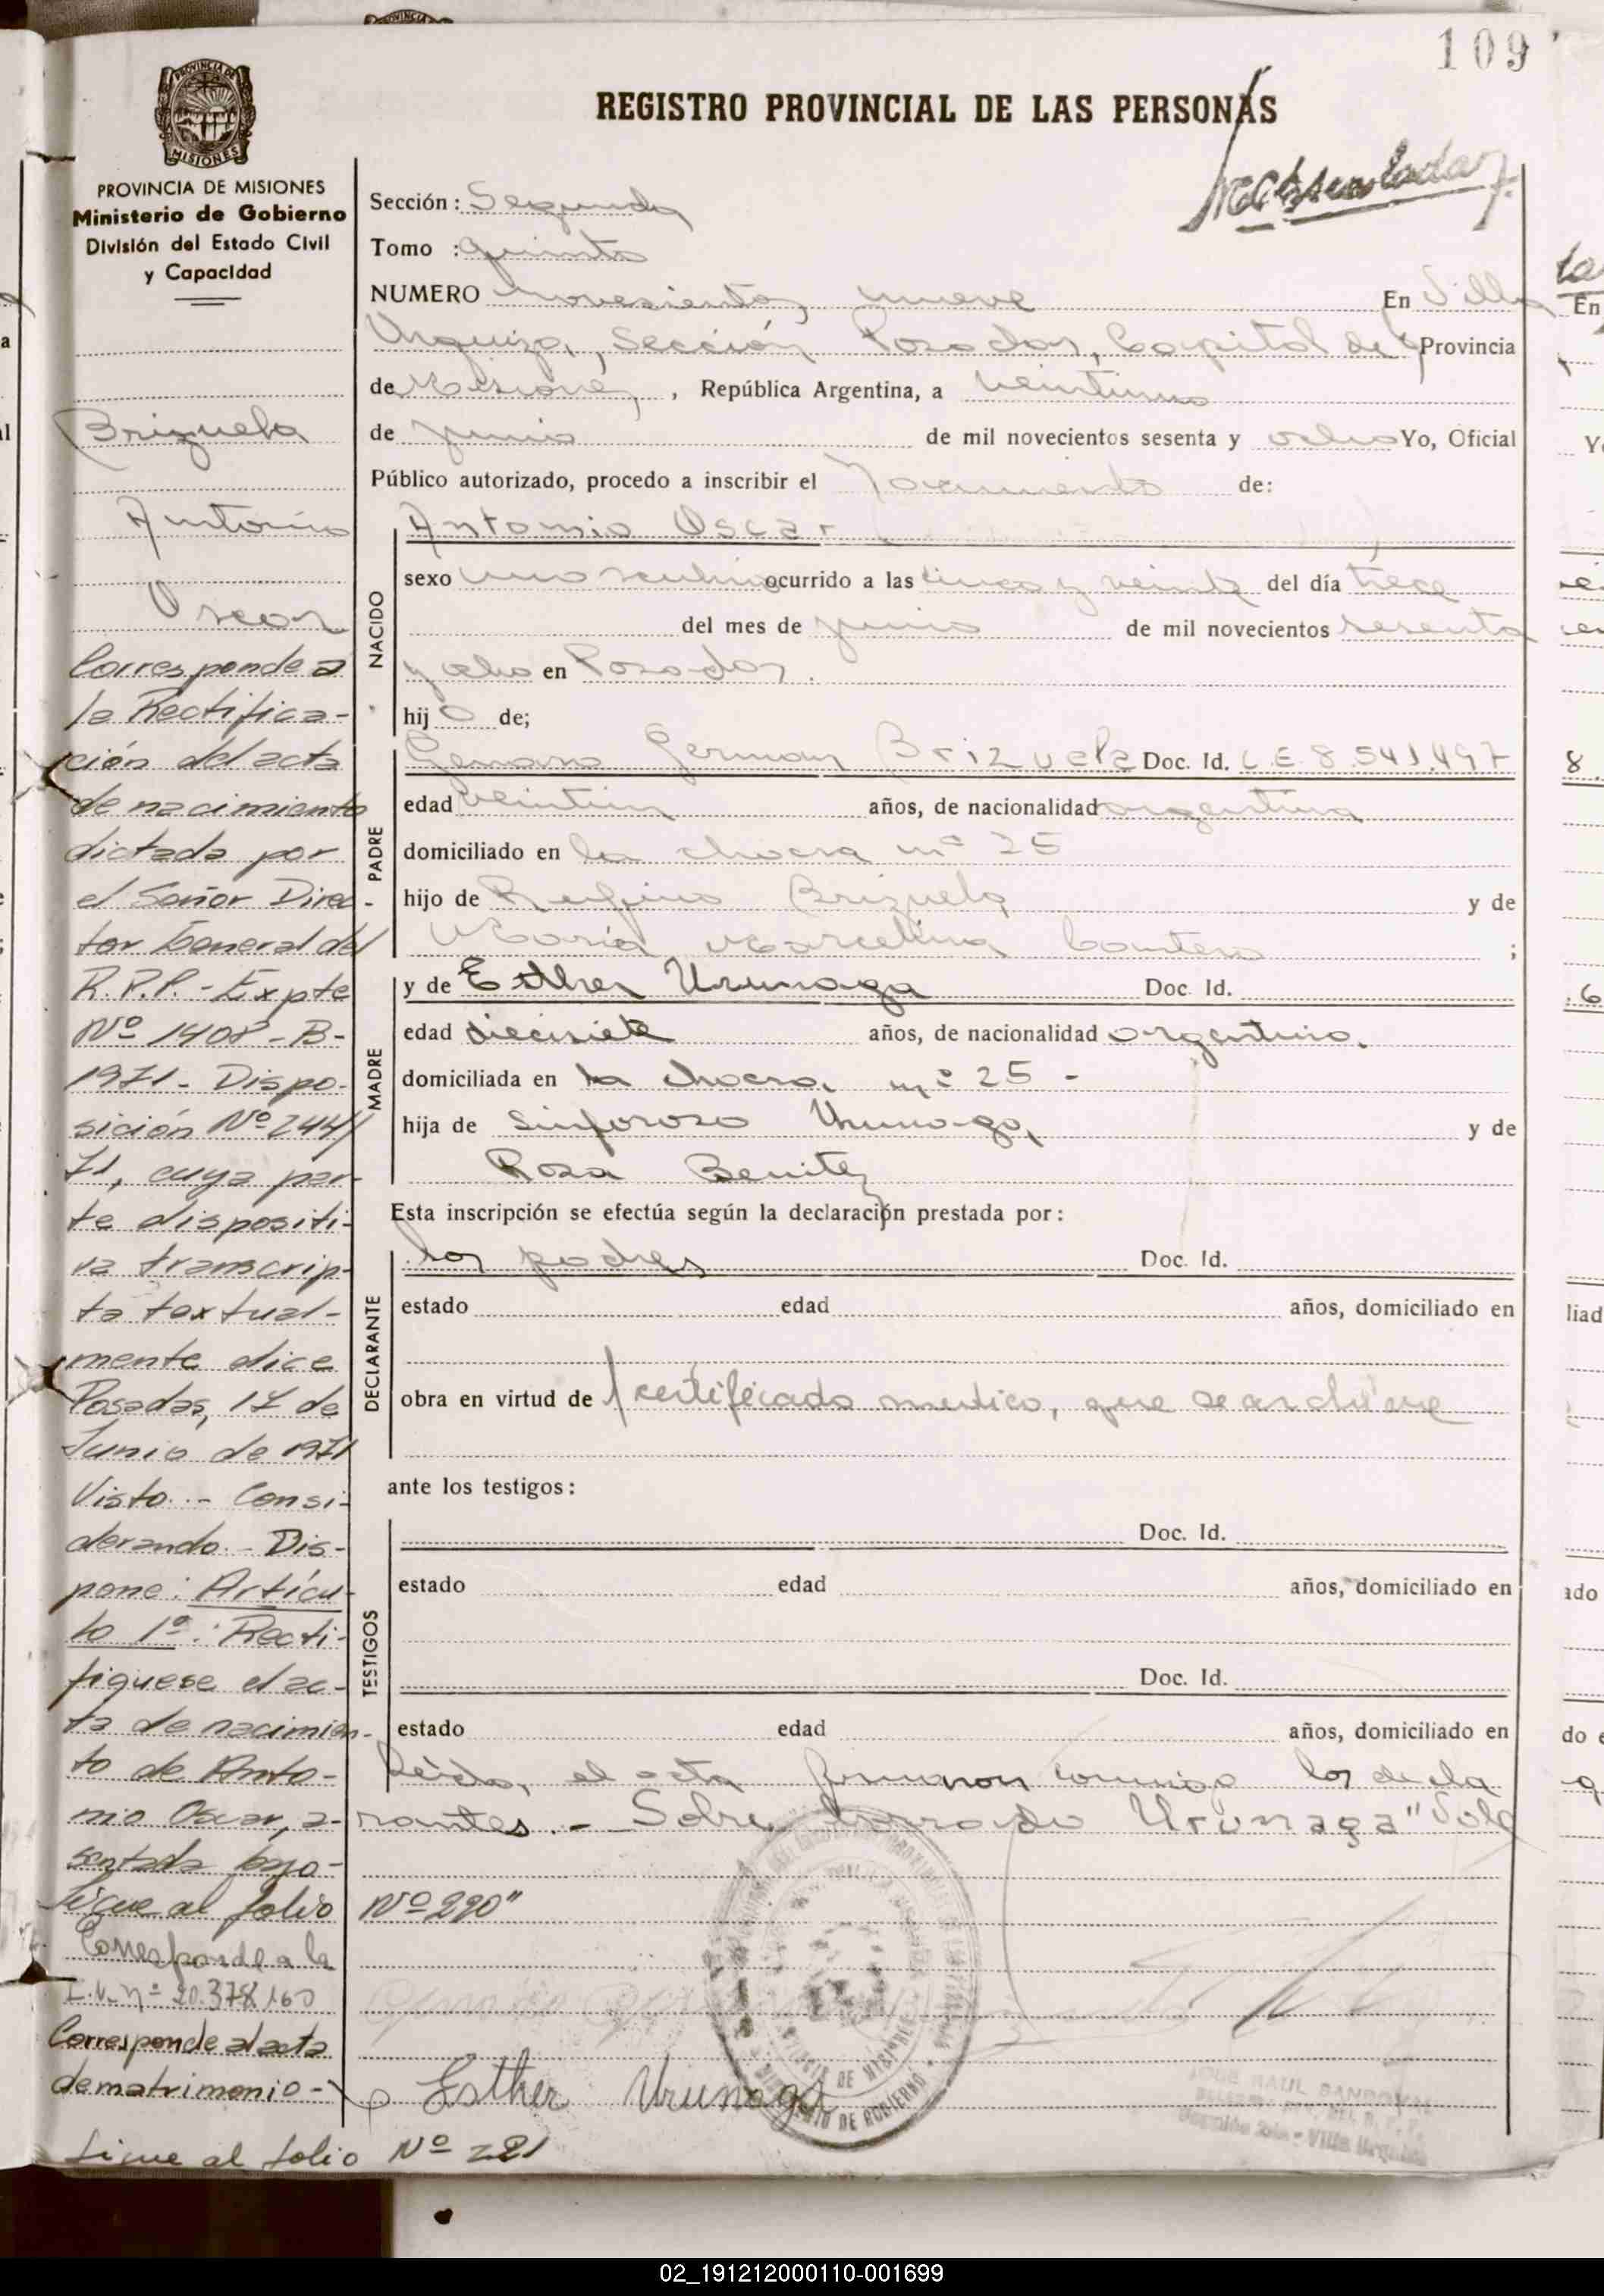 109
REGISTRO PROVINCIAL DE LAS PERSONAS
PROVINCIA DE MISIONES
Ministerio de Gobierno
División del Estado Civil
y Capacidad
Sección: Segunda
Tomo : quinto
NUMERO novesientos nueve En Villa
Urquiza, Sección Posadas, Capital de Provincia
de Misiones, República Argentina, a veintiuno
de junio de mil novecientos sesenta y ocho Yo, Oficial
Público autorizado, procedo a inscribir el Nacimiento de:
NACIDO
Antonio Oscar
sexo masculino ocurrido a las cinco y veinte del día trece
del mes de junio de mil novecientos sesenta
y ocho en Posadas.
hijo de;
PADRE
Genaro German Brizuela Doc. Id. L.E 8.541.497
edad veintiun años, de nacionalidad argentina
domiciliado en la chacra nº 25
hijo de Rufino Brizuela y de
Maria Marcelina Cantero ;
MADRE
y de Esther Urunaga Doc. Id.
edad diecisiete años, de nacionalidad argentina.
domiciliada en la chacra nº 25 -
hija de Sinforoso Urunaga y de
Rosa Benitez
Esta inscripción se efectúa según la declaración prestada por:
DECLARANTE
los padres Doc. Id.
estado edad años, domiciliado en
obra en virtud de certificado medico, que se archive
ante los testigos:
TESTIGOS
Doc. Id.
estado edad años, domiciliado en
Doc. Id.
estado edad años, domiciliado en
Leida, el acta firmaron conmigo los decla
rantes. - Sobre borrado Urunaga" Vale
Brizuela
Antonio
Oscar
Corresponde a
la Rectifica-
ción del acta
de nacimiento
dictada por
el Señor Direc-
tor General del
R.P.P. - Expte
Nº 1408 - B-
1971 - Dispo-
sición Nº 244/
71, cuya par-
te dispositi-
va transcrip-
ta textual-
mente dice
Posadas, 17 de
Junio de 1971
Visto.. - Consi-
derando. - Dis-
pone: Artícu-
lo 1º: Recti-
fiquese el ac-
ta de nacimien-
to de Anto-
nio Oscar, a-
sentada bajo-
Sigue al folio Nº 220"
Corresponde a la
nº 20.378.160
Corresponde al acta
de matrimonio -
Esther Urunaga
JOSE RAUL SANDOVAL
Sigue al folio Nº 221
02_191212000110-001699